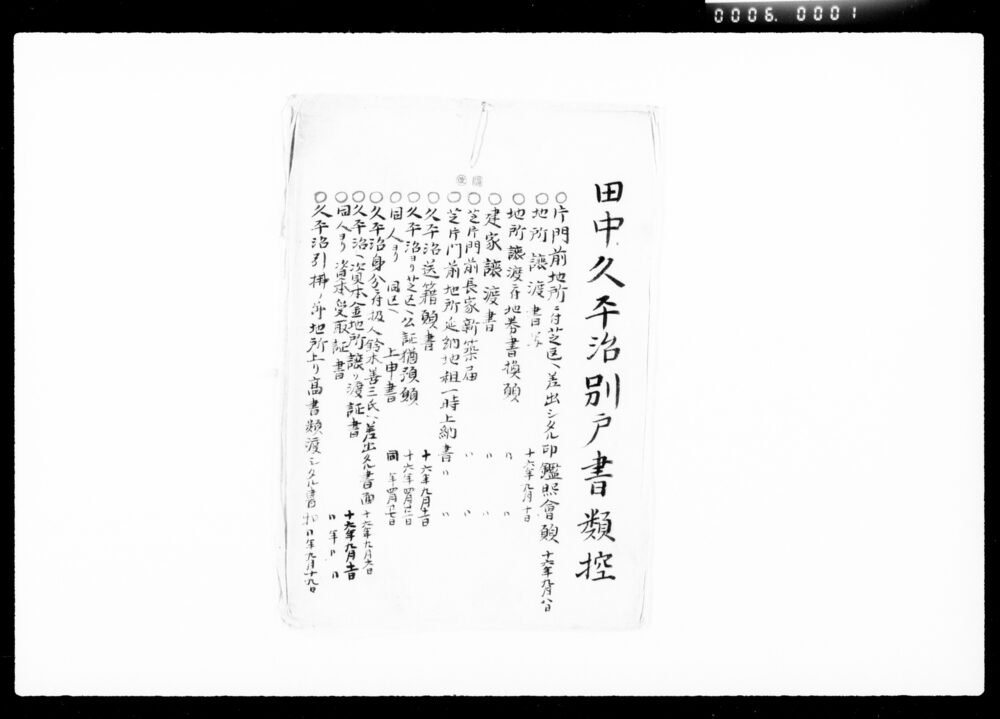 0006. 0001
田中久平治別戸書類控
○片門前地所ニ付芝区ヘ差出シタル印鑑照會願 十六年九月八日
○地所譲渡書 十六年九月十日
○地所譲渡ニ付地券書換願 〃 〃
○建家譲渡書 〃 〃
○芝片門前長家新築届 〃 〃
○芝片門前地所延納地租一時上納書 〃 〃
○久平治送籍願書 十六年九月十一日
○久平治ヨリ芝区ヘ公証猶預願 十六年四月廿一日
○同人ヨリ同区ヘ上申書 同年四月廿七日
○久平治身分ニ付扱人鈴木善三氏ヘ差出タル書面 十六年九月六日
○久平治ヘ資本金地所譲リ渡証書 十六年九月十一日
○同人ヨリ資本受取証書 〃年〃〃
○久平治引拂ノ節地所上リ高書類渡シタル書 〃年九月十九日